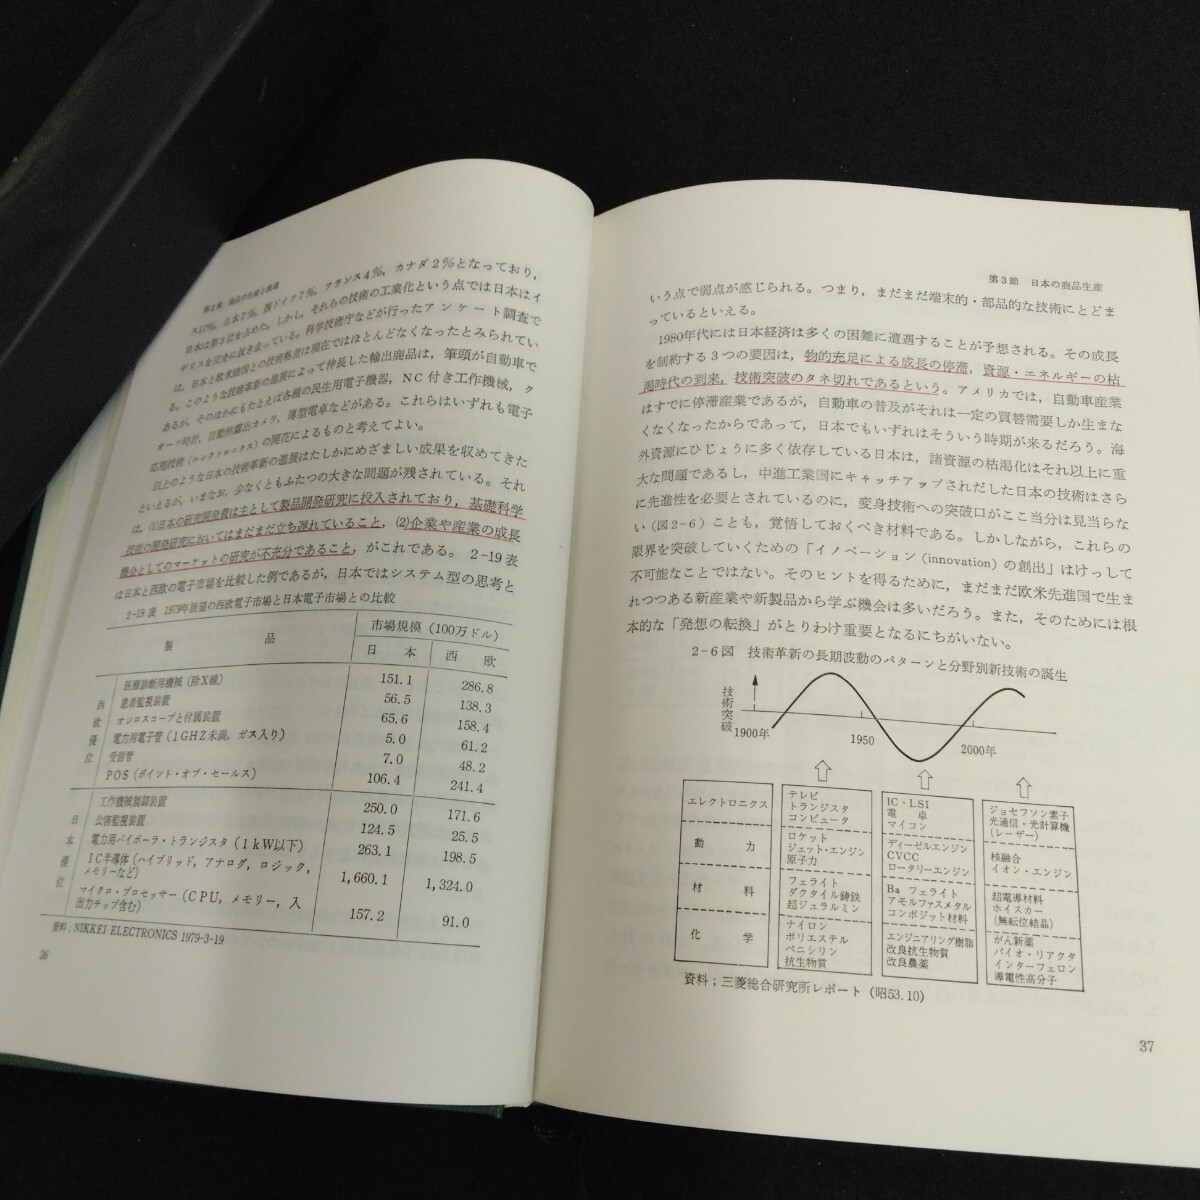 第2章 商品の生産と流通
ス17％，日本7％，西ドイツ7％，フランス4％，カナダ2％となっており，
日本は第3位を占めた。しかし，それらの技術の工業化という点では日本はイ
ギリスを完全に抜き去っている。科学技術庁などが行ったアンケート調査で
は，日本と欧米諸国との技術格差は現在ではほとんどなくなったとみられてい
る。このような技術革新の進展によって伸長した輸出商品は，筆頭が自動車で
あるが，そのほかにもたとえば各種の民生用電子機器，NC付き工作機械，ク
オーツ時計，自動露出カメラ，薄型電卓などがある。これらはいずれも電子
応用技術（エレクトロニクス）の開花によるものと考えてよい。
以上のような日本の技術革新の進展はたしかにめざましい成果を収めてきた
といえるが，いまなお，少なくともふたつの大きな問題が残されている。それ
は，⑴日本の研究開発費は主として製品開発研究に投入されており，基礎科学
技術の開発研究においてはまだまだ立ち遅れていること，⑵企業や産業の成長
機会としてのマーケットの研究が不充分であること，がこれである。2-19表
は日本と西欧の電子市場を比較した例であるが，日本ではシステム型の思考と
2-19表 1979年展望の西欧電子市場と日本電子市場との比較
製品 市場規模（100万ドル）
日本 西欧
西欧優位
医療診断用機械（除X線） 151.1 286.8
患者監視装置 56.5 138.3
オシロスコープと付属装置 65.6 158.4
電力用電子管（1GHZ未満，ガス入り） 5.0 61.2
受信管 7.0 48.2
POS（ポイント・オブ・セールス） 106.4 241.4
日本優位
工作機械制御装置 250.0 171.6
公害監視装置 124.5 25.5
電力用バイポーラ・トランジスタ（1kW以下） 263.1 198.5
IC半導体（ハイブリッド，アナログ，ロジック，
メモリーなど） 1,660.1 1,324.0
マイクロ・プロセッサー（CPU，メモリー，入
出力チップ含む） 157.2 91.0
資料；NIKKEI ELECTRONICS 1979-3-19
36
第3節 日本の商品生産
いう点で弱点が感じられる。つまり，まだまだ端末的・部品的な技術にとどま
っているといえる。
1980年代には日本経済は多くの困難に遭遇することが予想される。その成長
を制約する3つの要因は，物的充足による成長の停滞，資源・エネルギーの枯
渇時代の到来，技術突破のタネ切れであるという。アメリカでは，自動車産業
はすでに停滞産業であるが，自動車の普及がそれは一定の買替需要しか生まな
くなくなったからであって，日本でもいずれはそういう時期が来るだろう。海
外資源にひじょうに多く依存している日本は，諸資源の枯渇化はそれ以上に重
大な問題であるし，中進工業国にキャッチアップされだした日本の技術はさら
に先進性を必要とされているのに，変身技術への突破口がここ当分は見当らな
い（図2-6）ことも，覚悟しておくべき材料である。しかしながら，これらの
限界を突破していくための「イノベーション（innovation）の創出」はけっして
不可能なことではない。そのヒントを得るために，まだまだ欧米先進国で生ま
れつつある新産業や新製品から学ぶ機会は多いだろう。また，そのためには根
本的な「発想の転換」がとりわけ重要となるにちがいない。
2-6図 技術革新の長期波動のパターンと分野別新技術の誕生
技術突破
1900年 1950 2000年
エレクトロニクス
動力
材料
化学
テレビ
トランジスタ
コンピュータ
ロケット
ジェット・エンジン
原子力
フェライト
ダクタイル鋳鉄
超ジュラルミン
ナイロン
ポリエステル
ペニシリン
抗生物質
IC・LSI
電卓
マイコン
ディーゼルエンジン
CVCC
ロータリーエンジン
Ba フェライト
アモルファスメタル
コンポジット材料
エンジニアリング樹脂
改良抗生物質
改良農薬
ジョセフソン素子
光通信・光計算機
（レーザー）
核融合
イオン・エンジン
超電導材料
ホイスカー
（無転位結晶）
がん新薬
バイオ・リアクタ
インターフェロン
導電性高分子
資料；三菱総合研究所レポート（昭53.10）
37